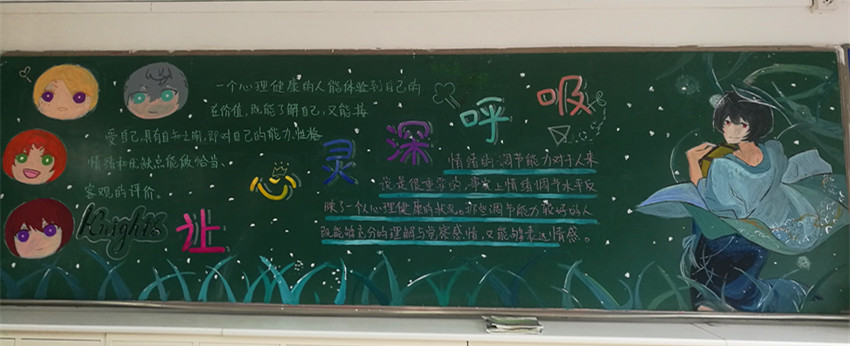 一个心理健康的人能体验到自己的
在价值,既能了解自己,又能接
受自己,具有自知之明,即对自己的能力,性格
情绪和优缺点能做恰当、
客观的评价。
Knights
让心灵深呼吸
情绪的调节能力对于人来
说是很重要的,事实上情绪调节水平反
映了一个人心理健康的状况。那些调节能力最好的人
既能够充分的理解与觉察感情,又能够表达情感。